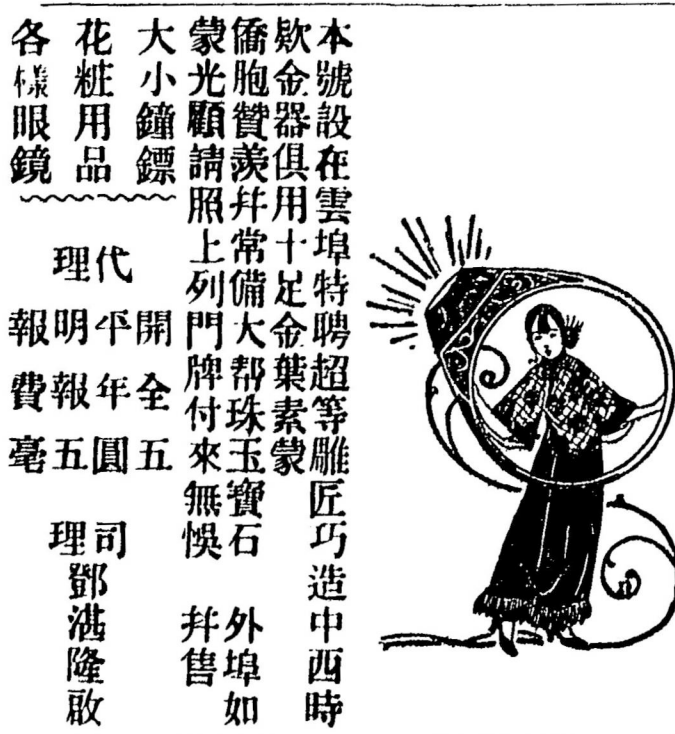 本號設在雲埠特聘超等雕匠巧造中西時
欵金器俱用十足金葉素蒙
僑胞贊羡幷常備大帮珠玉寶石 外埠如
蒙光顧請照上列門牌付來無悞 幷售
大小鐘鏢
花粧用品
各樣眼鏡
代理
開平明報
全年報費
五圓五毫
司理鄧湛隆啟